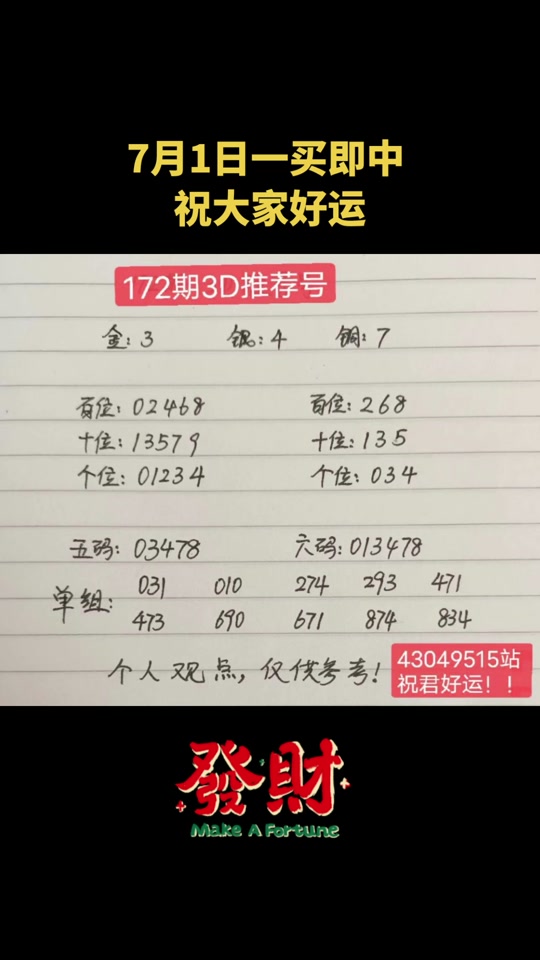 7月1日一买即中
祝大家好运
172期3D推荐号
金:3 银:4 铜:7
百位:02468 百位:268
十位:13579 十位:135
个位:01234 个位:034
五码:03478 六码:013478
单组:
031 010 274 293 471
473 690 671 874 834
个人观点,仅供参考!
43049515站
祝君好运!!
發財
Make A Fortune